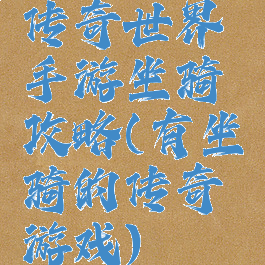 传奇世界
手游坐骑
攻略(有坐
骑的传奇
游戏)